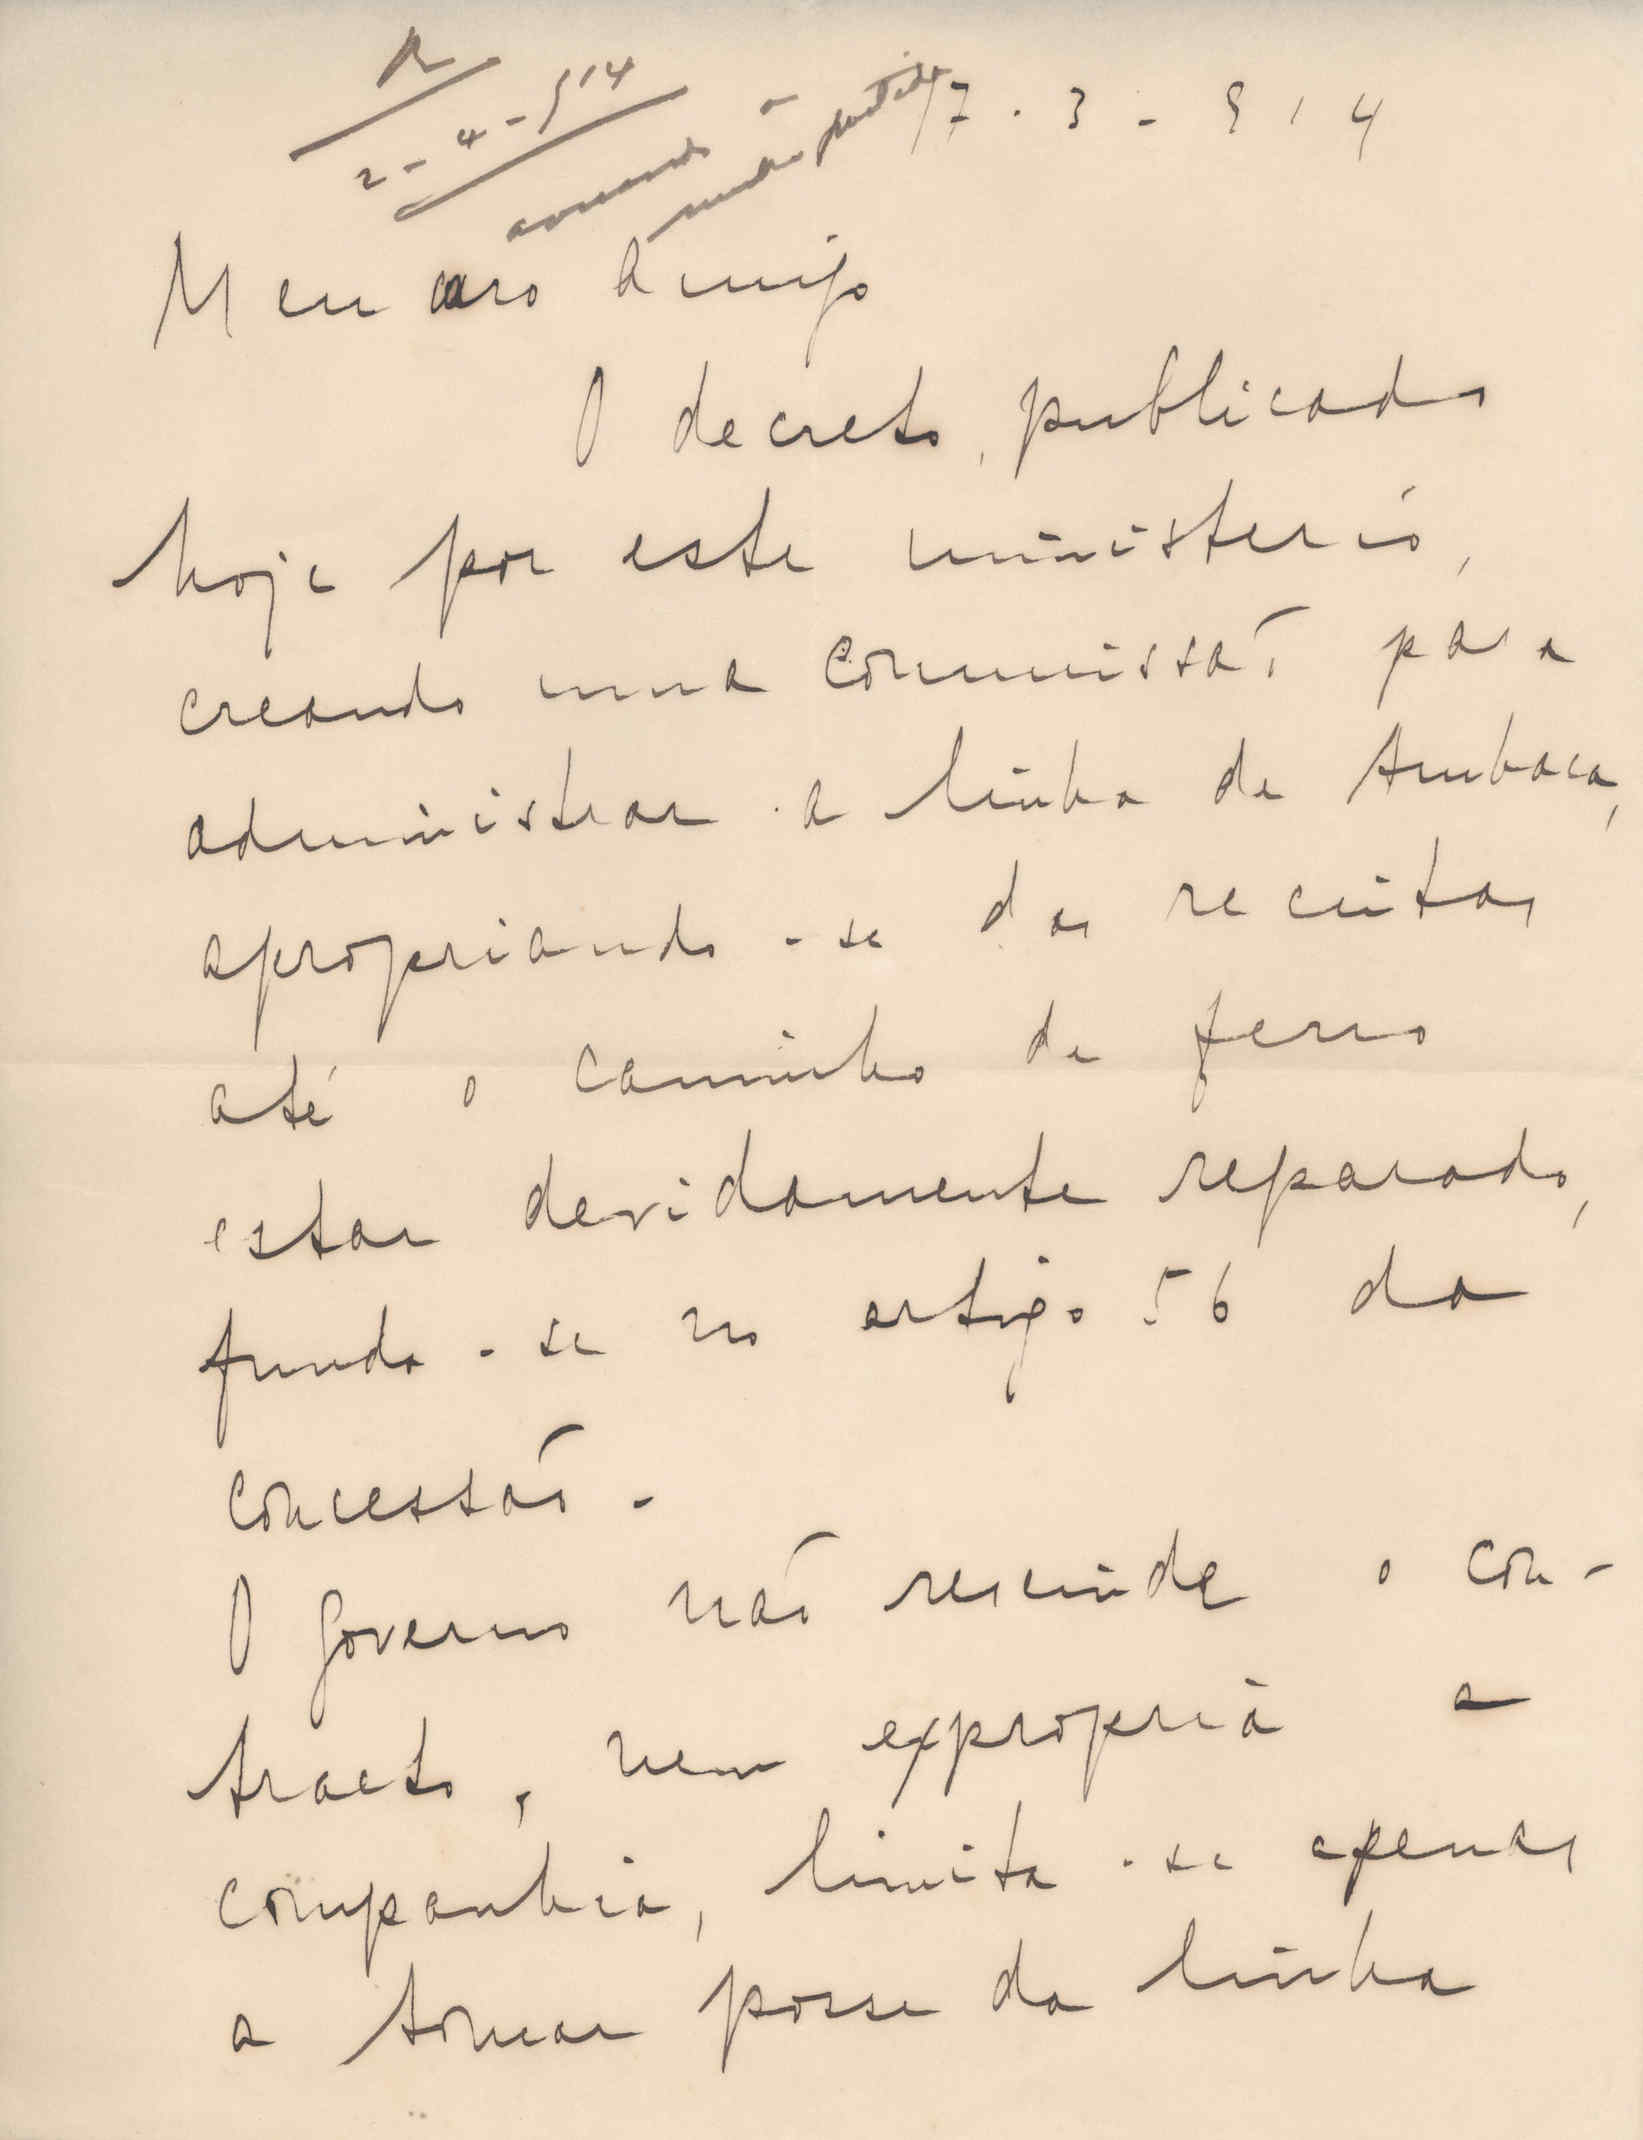 R
2-4-914
a
17-3-914
Meu caro Amigo
O decreto, publicado
hoje por este ministerio,
creando uma commissão para
administrar a linha de Ambaca,
apropriando-se das receitas
até o caminho de ferro
estar devidamente reparado,
funda-se no artigo 56 da
concessão.
O Governo não rescinde o con-
tracto, nem expropria a
companhia, limita-se apenas
a tomar posse da linha